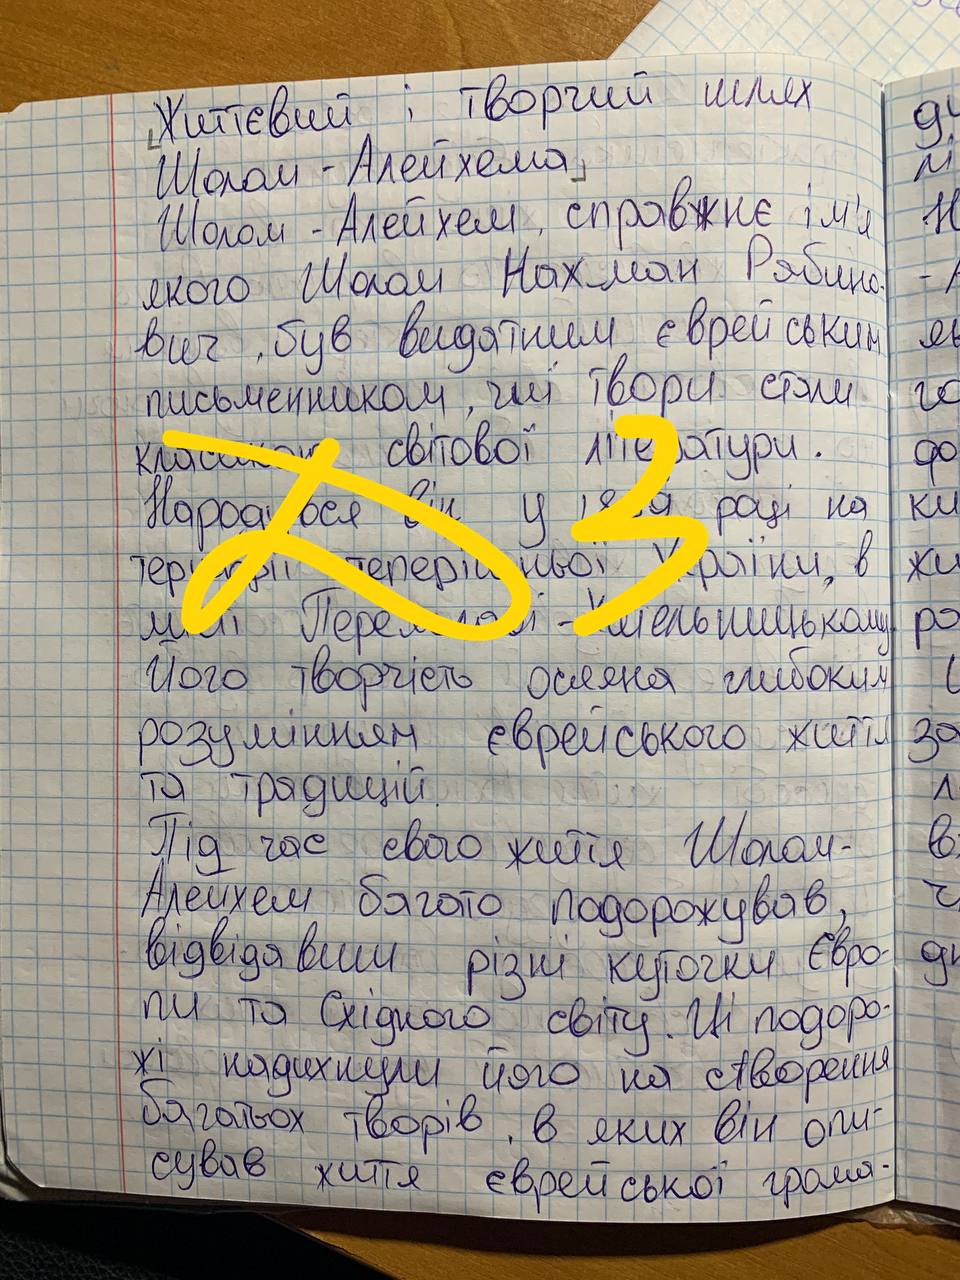 „Життєвий і творчий шлях
Шолом-Алейхема"
Шолом-Алейхем, справжнє ім'я
якого Шолом Нахман Рябино-
вич, був видатним єврейським
письменником, чиї твори стали
класикою світової літератури.
Народився він у раці на
території теперішньої України, в
місті Переяславі-Хмельницькому.
Його творчість осяяна глибоким
розумінням єврейського життя
та традицій.
Під час свого життя Шолом-
Алейхем багато подорожував,
відвідавши різні куточки Євро-
пи та Східного світу. Ці подоро-
жі надихнули його на створення
багатьох творів, в яких він опи-
сував життя єврейської грома-
ДЗ